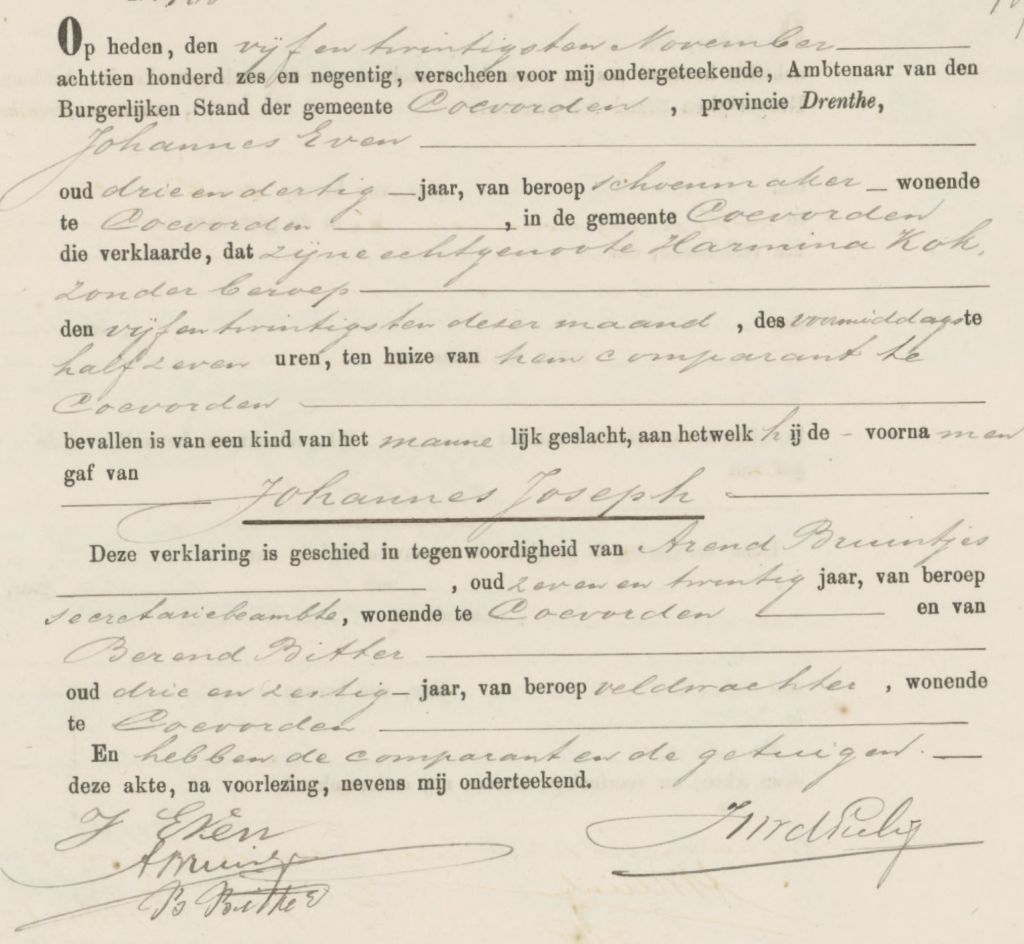 Op heden, den vijf en twintigsten November
achttien honderd zes en negentig, verscheen voor mij ondergeteekende, Ambtenaar van den
Burgerlijken Stand der gemeente Coevorden, provincie Drenthe,
Johannes Even
oud drie en dertig jaar, van beroep schoenmaker wonende
te Coevorden, in de gemeente Coevorden
die verklaarde, dat zijne echtgenoote Harmina Kok,
zonder beroep
den vijf en twintigsten dezer maand, des voormiddags te
half zeven uren, ten huize van hem comparant te
Coevorden
bevallen is van een kind van het manne lijk geslacht, aan hetwelk hij de - voorna men
gaf van
Johannes Joseph
Deze verklaring is geschied in tegenwoordigheid van Arend Bruintjes
, oud zeven en twintig jaar, van beroep
secretariebeambte, wonende te Coevorden en van
Berend Bitter
oud drie en zestig jaar, van beroep veldwachter, wonende
te Coevorden
En hebben de comparant en de getuigen
deze akte, na voorlezing, nevens mij onderteekend.
J Even
B Bitter